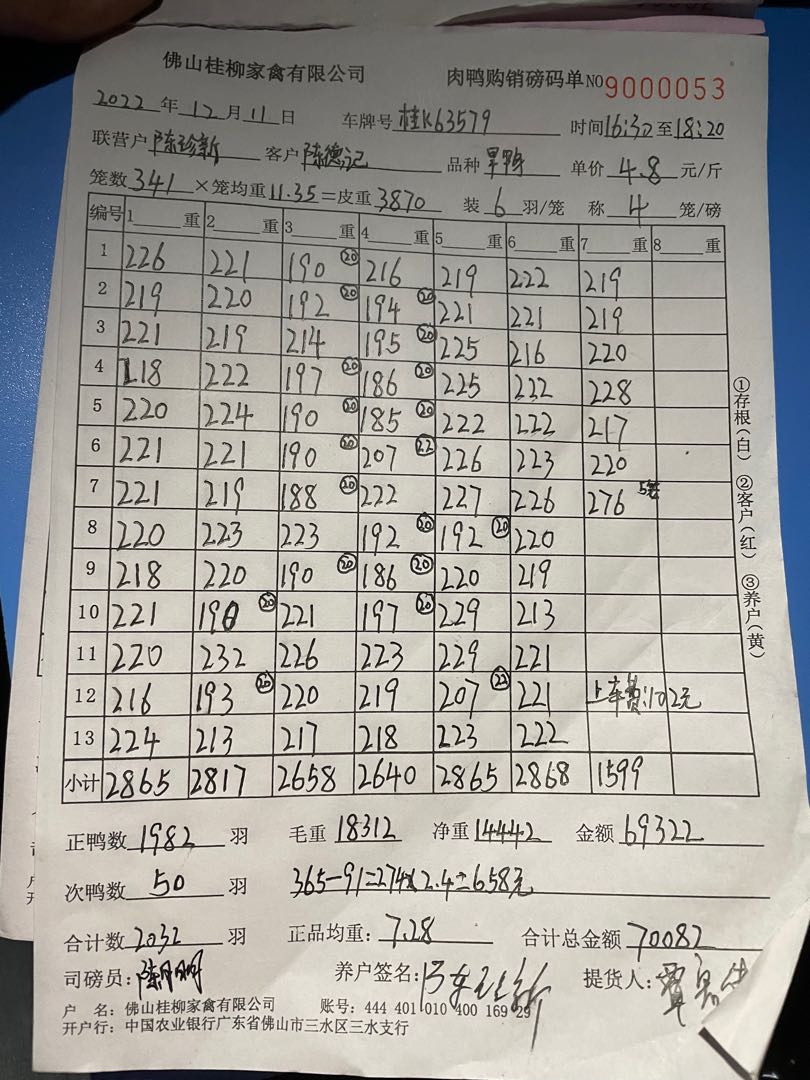 佛山桂柳家禽有限公司 肉鸭购销磅码单 NO 9000053
2022年12月11日 车牌号 桂K63579 时间 16:32 至 18:20
联营户 陈珍新 客户 陈德记 品种 旱鸭 单价 4.8 元/斤
笼数 341 ×笼均重 11.35 =皮重 3870 装 6 羽/笼 称 4 笼/磅
编号 1 重 2 重 3 重 4 重 5 重 6 重 7 重 8 重
1 226 221 190 ⑳ 216 219 222 219
2 219 220 192 ⑳ 194 ⑳ 221 221 219
3 221 219 214 195 ⑳ 225 216 220
4 218 222 197 ⑳ 186 ⑳ 225 232 228
5 220 224 190 ⑳ 185 ⑳ 222 222 217
6 221 221 190 ⑳ 207 ㉒ 226 223 220
7 221 219 188 ⑳ 222 227 226 276 5笼
8 220 223 223 192 ⑳ 192 ⑳ 220
9 218 220 190 ⑳ 186 ⑳ 220 219
10 221 190 ⑳ 221 197 ⑳ 229 213
11 220 232 226 223 229 221
12 216 193 ⑳ 220 219 207 ㉒ 221 上车费:102元
13 224 213 217 218 223 222
小计 2865 2817 2658 2640 2865 2868 1599
正鸭数 1982 羽 毛重 18312 净重 14442 金额 69322
次鸭数 50 羽 365-91=274×2.4=658元
合计数 2032 羽 正品均重: 7.28 合计总金额 70082
司磅员: 养户签名: 陈珍新 提货人:
户 名: 佛山桂柳家禽有限公司 账号: 444 401 010 400 169 29
开户行: 中国农业银行广东省佛山市三水区三水支行
①存根(白) ②客户(红) ③养户(黄)